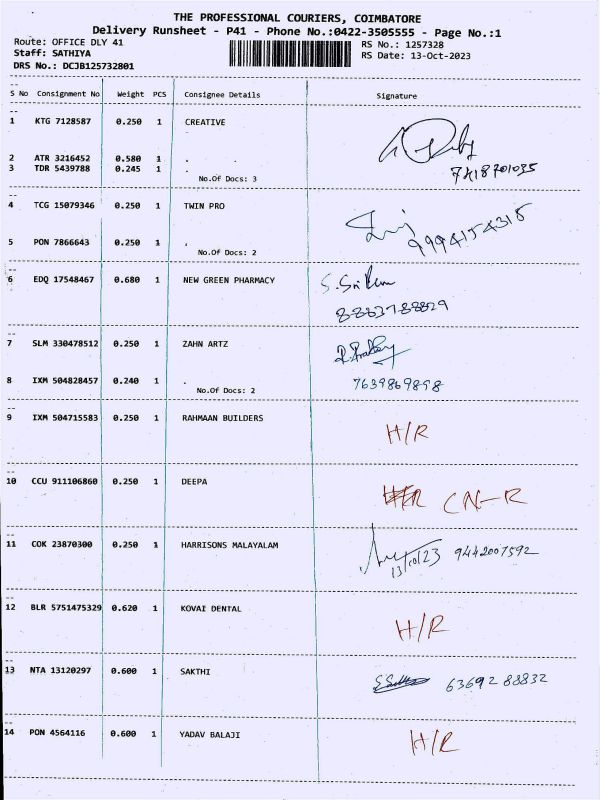 THE PROFESSIONAL COURIERS, COIMBATORE
Delivery Runsheet - P41 - Phone No.:0422-3505555 - Page No.:1
Route: OFFICE DLY 41 RS No.: 1257328
Staff: SATHIYA RS Date: 13-Oct-2023
DRS No.: DCJB125732801
S No Consignment No Weight PCS Consignee Details Signature
1 KTG 7128587 0.250 1 CREATIVE
2 ATR 3216452 0.580 1 .
3 TDR 5439788 0.245 1 .
No.Of Docs: 3
4 TCG 15079346 0.250 1 TWIN PRO
9994154315
5 PON 7866643 0.250 1 .
No.Of Docs: 2
6 EDQ 17548467 0.680 1 NEW GREEN PHARMACY
7 SLM 330478512 0.250 1 ZAHN ARTZ
8 IXM 504828457 0.240 1 . 7639869898
No.Of Docs: 2
9 IXM 504715583 0.250 1 RAHMAAN BUILDERS H/R
10 CCU 911106860 0.250 1 DEEPA CN-R
11 COK 23870300 0.250 1 HARRISONS MALAYALAM 13/10/23 9442007592
12 BLR 5751475329 0.620 1 KOVAI DENTAL H/R
13 NTA 13120297 0.600 1 SAKTHI 6369288832
14 PON 4564116 0.600 1 YADAV BALAJI H/R